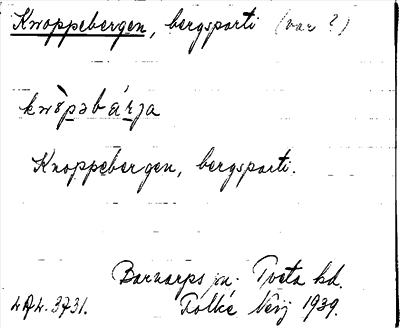 Knoppebergen, bergsparti (var ?)
knòp̲əbár̲ja
Knoppebergen, bergsparti.
Barnarps sn. Tveta hd.
Folke 1939.